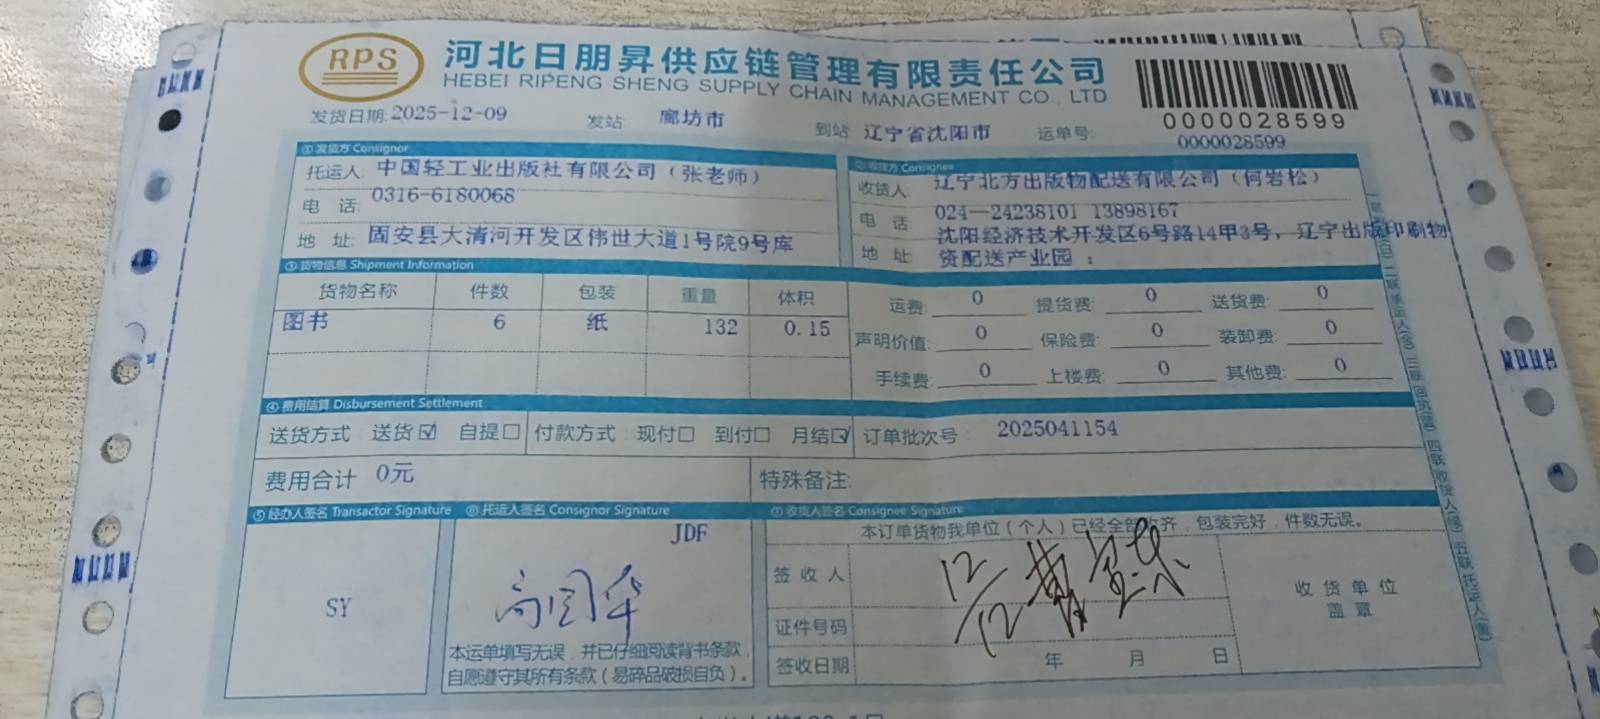 RPS
河北日朋昇供应链管理有限责任公司
HEBEI RIPENG SHENG SUPPLY CHAIN MANAGEMENT CO., LTD
0000028599
发货日期: 2025-12-09 发站: 廊坊市 到站: 辽宁省沈阳市 运单号: 0000028599
①发货方 Consignor
托运人: 中国轻工业出版社有限公司（张老师）
电 话: 0316-6180068
地 址: 固安县大清河开发区伟世大道1号院9号库
②收货方 Consignee
收货人: 辽宁北方出版物配送有限公司（何岩松）
电 话: 024—24238101 13898167
地 址: 沈阳经济技术开发区6号路14甲3号，辽宁出版印刷物
资配送产业园 ：
③货物信息 Shipment Information
货物名称 件数 包装 重量 体积
图书 6 纸 132 0.15
运费: 0 提货费: 0 送货费: 0
声明价值: 0 保险费: 0 装卸费: 0
手续费: 0 上楼费: 0 其他费: 0
④费用结算 Disbursement Settlement
送货方式: 送货☑ 自提□ 付款方式: 现付□ 到付□ 月结☑ 订单批次号 2025041154
费用合计 0元 特殊备注:
⑤经办人签名 Transactor Signature
SY
⑥托运人签名 Consignor Signature
JDF
本运单填写无误，并已仔细阅读背书条款，
自愿遵守其所有条款（易碎品破损自负）。
⑦收货人签名 Consignee Signature
本订单货物我单位（个人）已经全部收齐，包装完好，件数无误。
签 收 人 12/12
证件号码
签收日期 年 月 日
收 货 单 位
盖 章